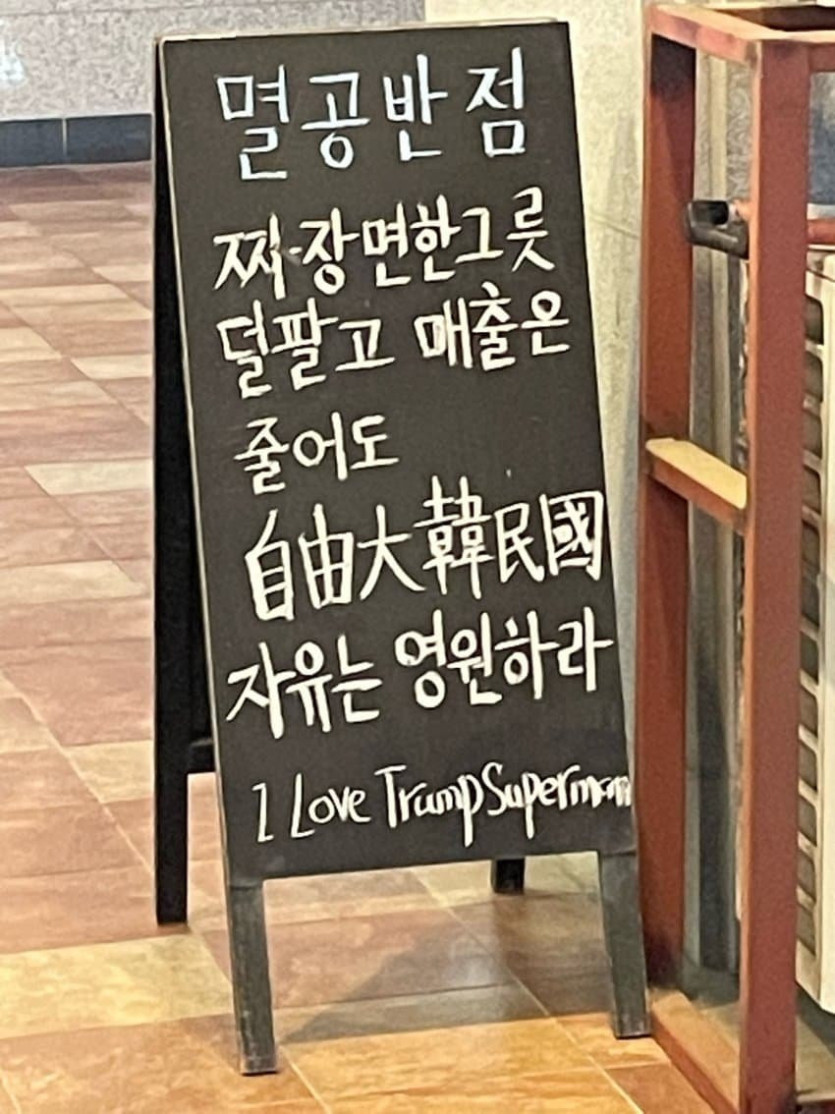 멸공반점
짜장면한그릇
덜팔고 매출은
줄어도
自由大韓民國
자유는 영원하라
I Love Trump Superman